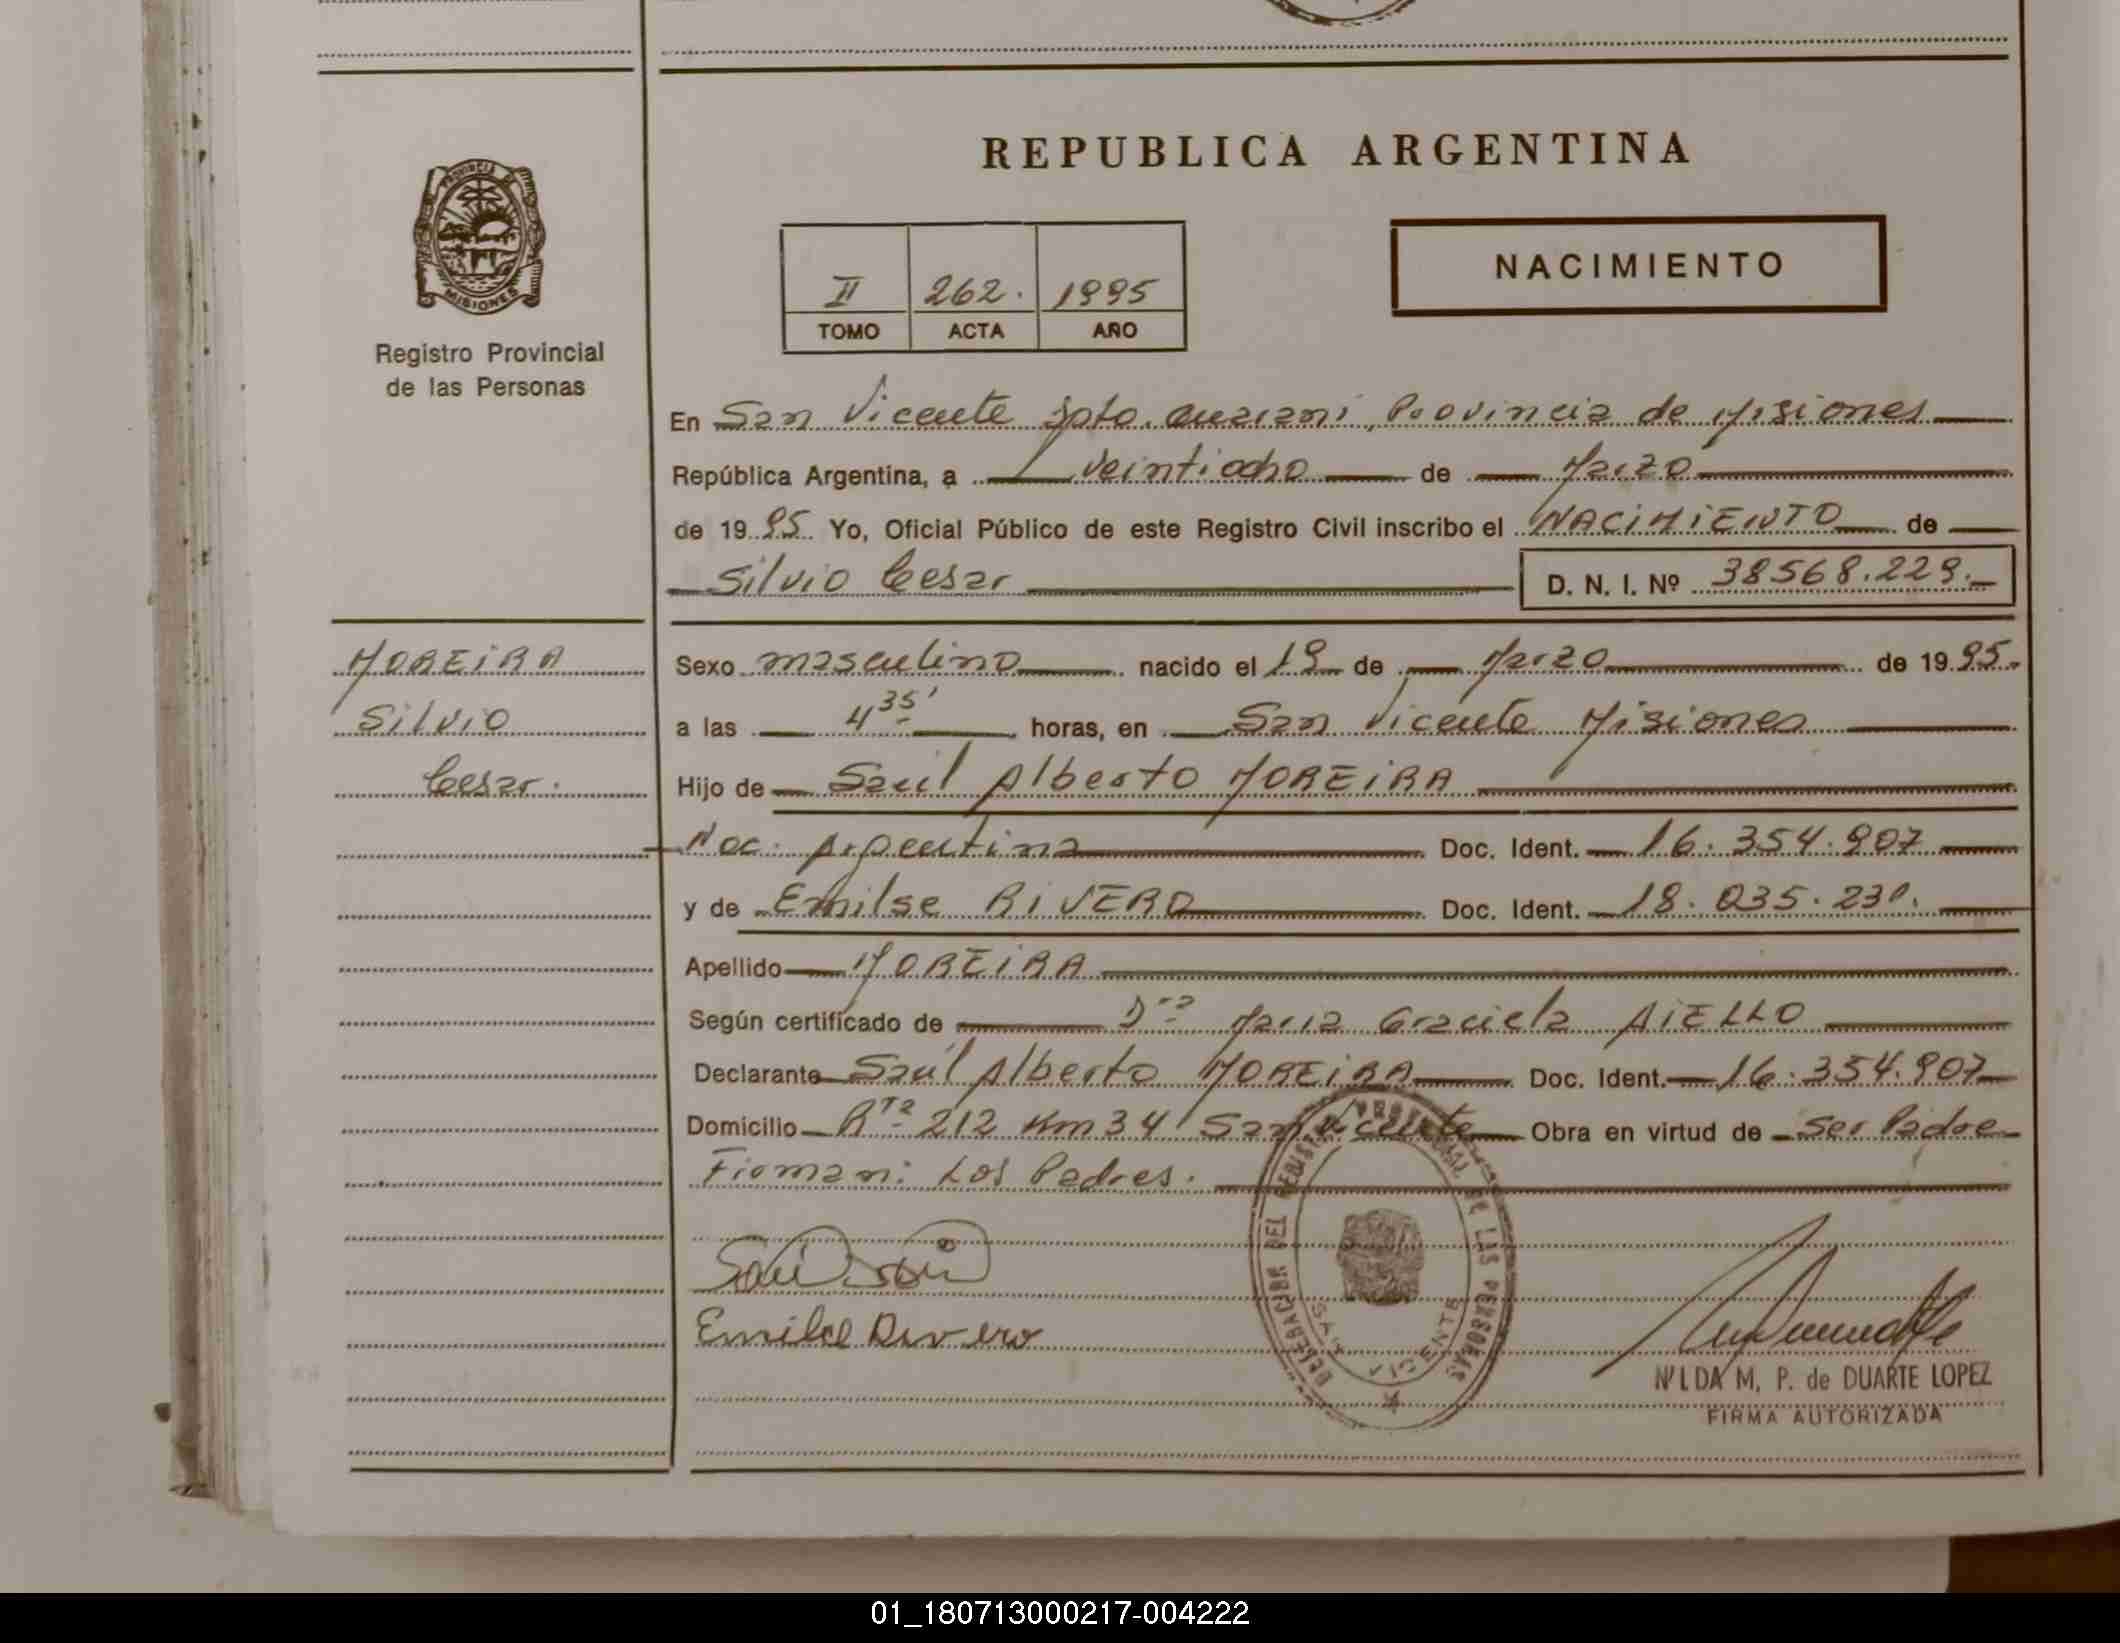 REPUBLICA ARGENTINA
PROVINCIA DE
MISIONES
Registro Provincial
de las Personas
II 262. 1995
TOMO ACTA AÑO
NACIMIENTO
En San Vicente Dpto. Guarani, Provincia de Misiones
República Argentina, a veintiocho de Marzo
de 1995 Yo, Oficial Público de este Registro Civil inscribo el NACIMIENTO de
Silvio Cesar D. N. I. Nº 38568.229.
MOREIRA
Silvio
Cesar.
Sexo masculino nacido el 19 de Marzo de 1995
a las 4 35' horas, en San Vicente Misiones
Hijo de Saúl Alberto MOREIRA
Nac. Argentina Doc. Ident. 16.354.907
y de Emilse RIVERO Doc. Ident. 18.035.230.
Apellido MOREIRA
Según certificado de Dra Maria Graciela AIELLO
Declarante Saúl Alberto MOREIRA Doc. Ident. 16.354.907
Domicilio Rta 212 Km 34 San Vicente Obra en virtud de Ser Padre
Firman: Los Padres.
Emilce Rivero
DELEGACION DEL REGISTRO PROVINCIAL DE LAS PERSONAS
SAN VICENTE
NILDA M. P. de DUARTE LOPEZ
FIRMA AUTORIZADA
01_180713000217-004222